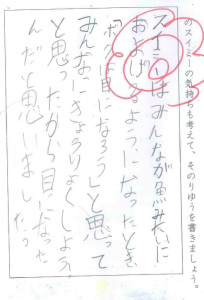 のスイミーの気持ちも考えて、そのりゆうを書きましょう。
スイミーはみんなが魚みたいに
およげるようになったとき、
ぼくが目になろうと思って
みんなにきょうりょくしよう
と思ったから目になった
んだと思いました。